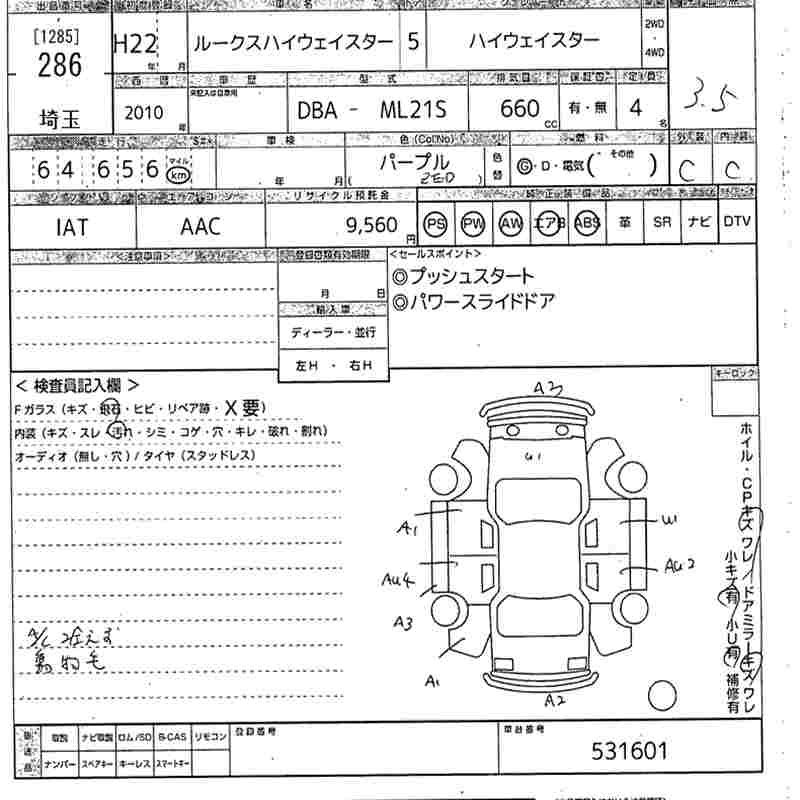 [1285]
286
埼玉
H22
年 月
ルークスハイウェイスター
5
ハイウェイスター
2WD
・
4WD
2010
年
車歴
型式
DBA - ML21S
排気量
660
CC
有・無
定員
4
名
3.5
64 656
マイル
km
車検
年 月
色(Col.No)
パープル
( ZED )
色替
燃料
Ⓖ・D・電気( その他 )
外装
C
内装
C
IAT
AAC
リサイクル預託金
9,560
円
純正装備品
PS PW AW エアB ABS 革 SR ナビ DTV
<注意事項>
登録書類有効期限
月 日
輸入車
ディーラー・並行
左H ・ 右H
<セールスポイント>
◎プッシュスタート
◎パワースライドドア
< 検査員記入欄 >
Fガラス (キズ・飛石・ヒビ・リペア跡・X要)
内装 (キズ・スレ・汚れ・シミ・コゲ・穴・キレ・破れ・割れ)
オーディオ (無し・穴) / タイヤ (スタッドレス)
キーロック
A3
U1
A1
W1
AU4
AU2
A3
A1
A2
ホイル・CPキズワレ/ドアミラーキズワレ
小キズ有 小U有 補修有
取説 ナビ取説 ロム/SD B-CAS リモコン
ナンバー スペアキー キーレス スマートキー
登録番号
車台番号
531601